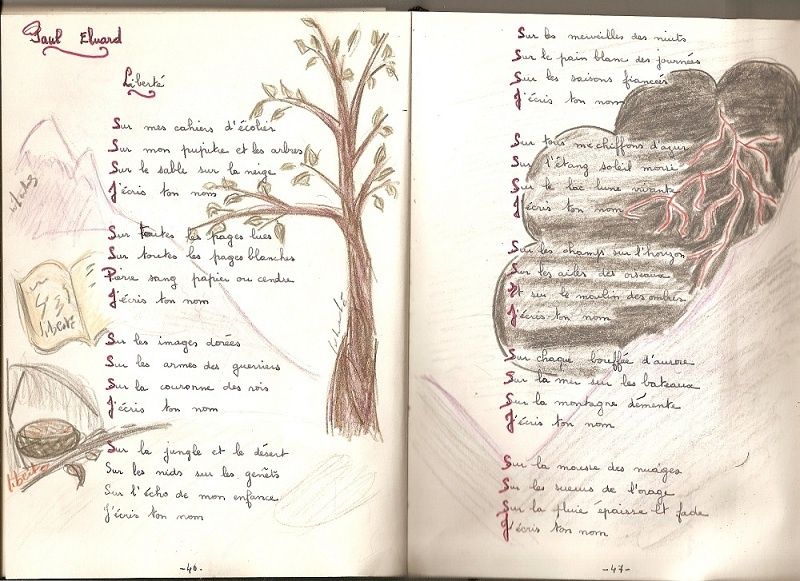 Paul Eluard
Liberté
Sur mes cahiers d'écolier
Sur mon pupitre et les arbres
Sur le sable sur la neige
J'écris ton nom
Sur toutes les pages lues
Sur toutes les pages blanches
Pierre sang papier ou cendre
J'écris ton nom
Sur les images dorées
Sur les armes des guerriers
Sur la couronne des rois
J'écris ton nom
Sur la jungle et le désert
Sur les nids sur les genêts
Sur l'écho de mon enfance
J'écris ton nom
liberté
liberté
liberté
-46-
Sur les merveilles des nuits
Sur le pain blanc des journées
Sur les saisons fiancées
J'écris ton nom
Sur tous me chiffons d'azur
Sur l'étang soleil moisi
Sur le lac lune vivante
J'écris ton nom
Sur les champs sur l'horizon
Sur les ailes des oiseaux
Et sur le moulin des ombres
J'écris ton nom
Sur chaque bouffée d'aurore
Sur la mer sur les bateaux
Sur la montagne démente
J'écris ton nom
Sur la mousse des nuages
Sur les sueurs de l'orage
Sur la pluie épaisse et fade
J'écris ton nom
-47-